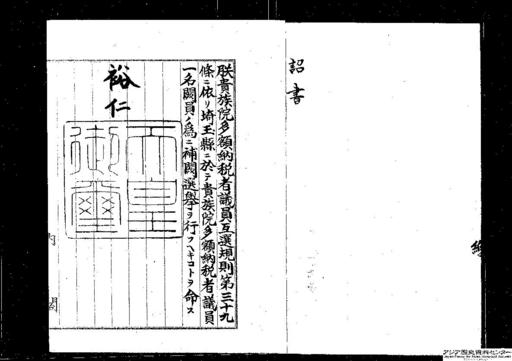 詔書
朕貴族院多額納税者議員互選規則第三十九
條ニ依リ埼玉縣ニ於テ貴族院多額納税者議員
一名闕員ノ爲ニ補闕選擧ヲ行フヘキコトヲ命ス
裕仁
天皇
御璽
内閣
アジア歴史資料センター